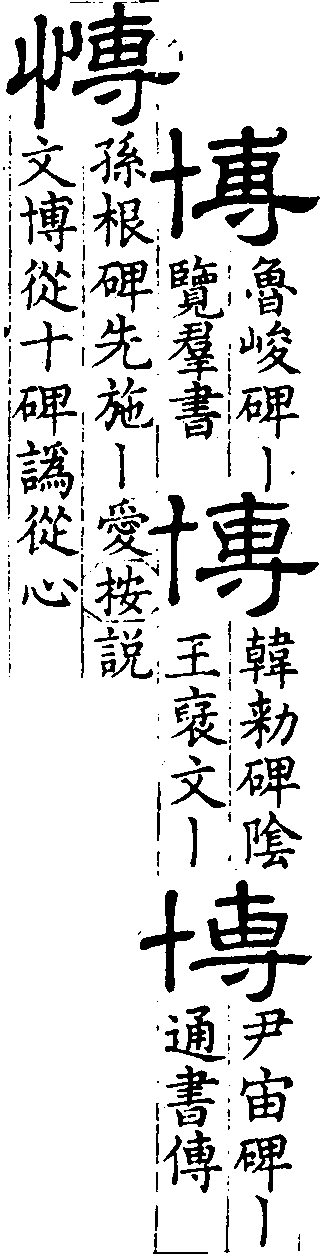 博
魯峻碑｜
覽羣書
博
韓勑碑陰
王裦文｜
博
尹宙碑｜
通書傳
愽
孫根碑先施｜愛按說
文博從十碑譌從心